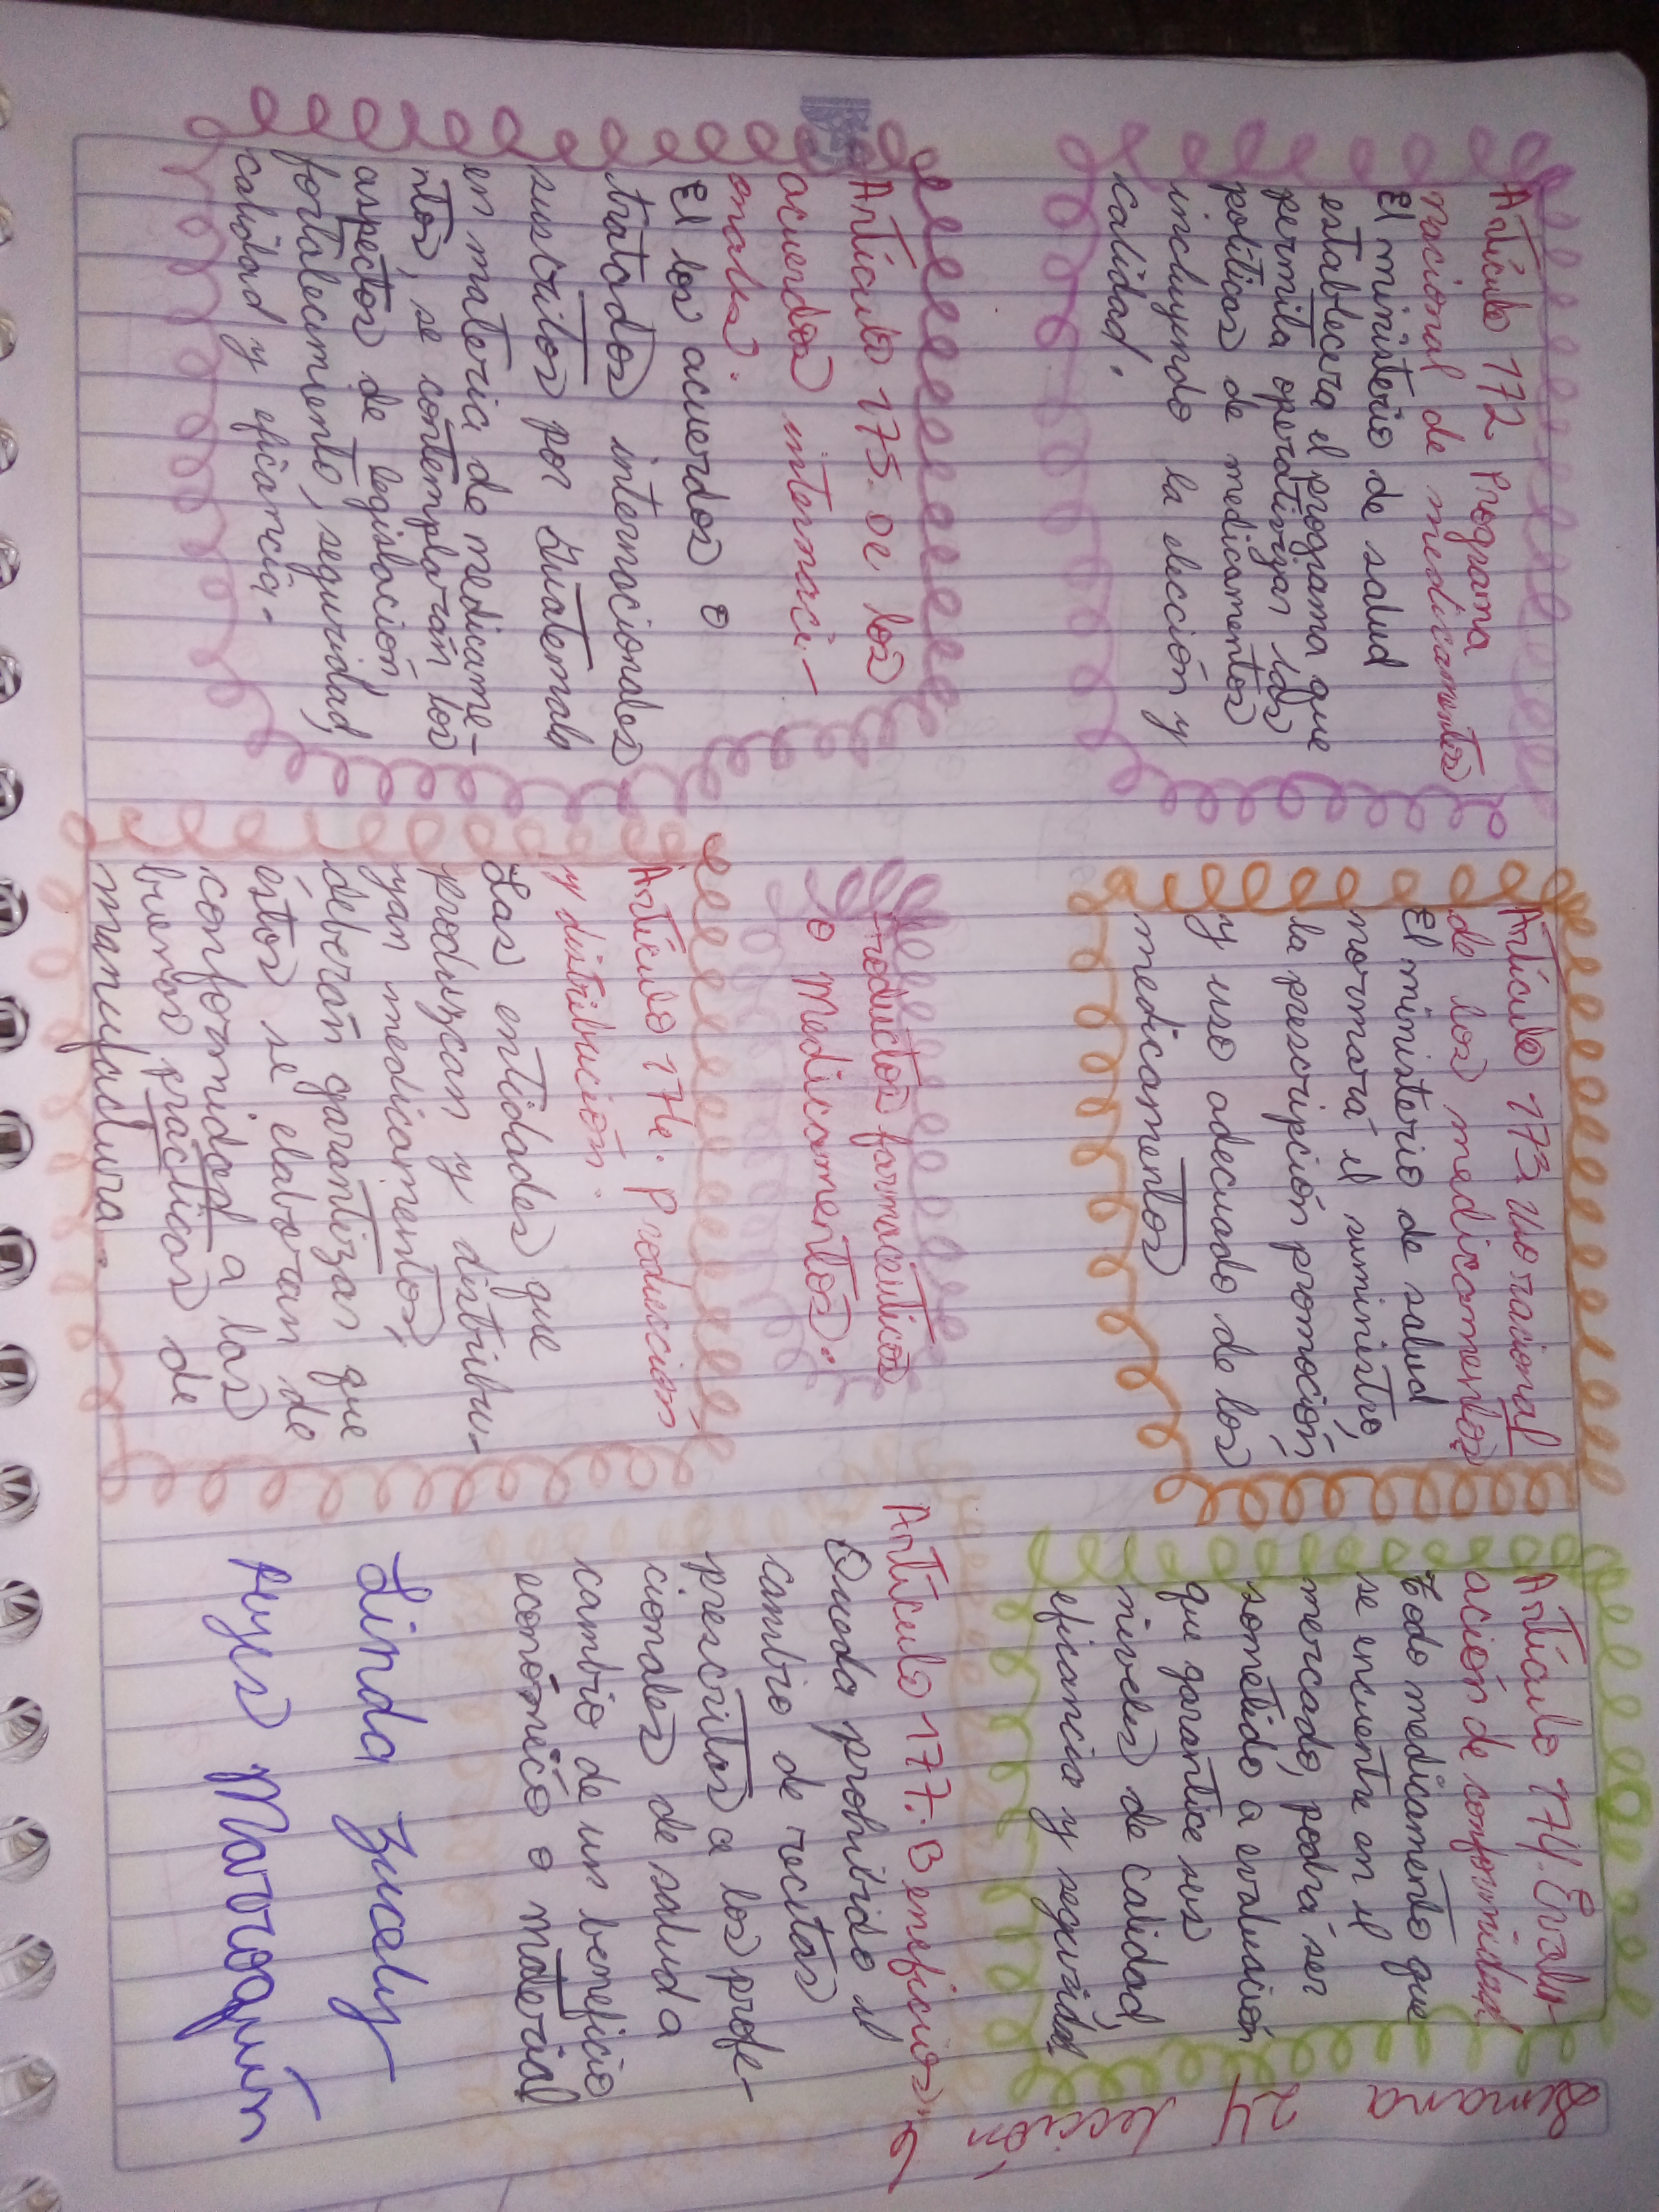 Semana 24 lección 6
Artículo 172 Programa
nacional de medicamentos
El ministerio de salud
establecera el programa que
permita operativizar las
politicas de medicamentos
incluyendo la elección y
calidad.
Artículo 173. Uso racional
de los medicamentos
El ministerio de salud
normará el suministro,
la prescripción promoción
y uso adecuado de los
medicamentos
Artículo 174. Evalu-
ación de conformidad
Todo medicamento que
se encuentre en el
mercado, podrá ser
sometido a evaluación
que garantice sus
niveles de calidad,
eficiancia y seguridad
Productos farmacéuticos
o Medicamentos:
Artículo 175. De los
acuerdos internaci-
onales.
El los acuerdos o
tratados internacionales
suscritos por Guatemala
en materia de medicame-
ntos, se contemplarán los
aspectos de legislación,
fortalecimiento, seguridad,
calidad y eficiancia.
Artículo 176. Producción
y distribución.
Las entidades que
produzcan y distribu-
yan medicamentos,
deberán garantizar que
éstos se elaboran de
conformidad a las
buenas prácticas de
manufactura.
Artículo 177. Beneficios.
Queda prohibido el
cambio de recetas
prescritas a los profe-
cionales de salud a
cambio de un beneficio
económico o material
Linda Zucely
Reyes Marroquín